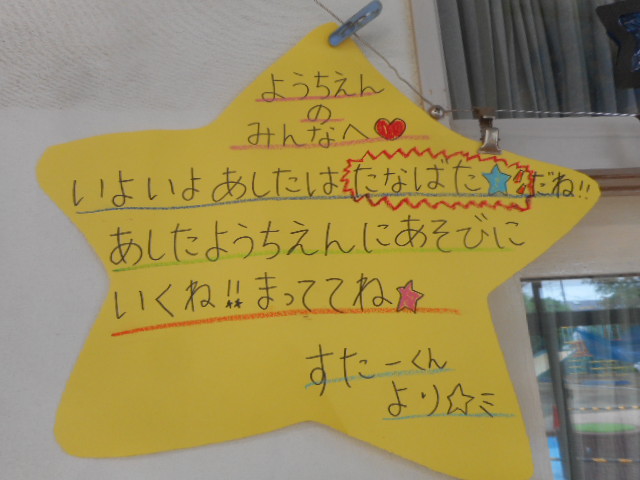 ようちえん
の
みんなへ♥
いよいよあしたはたなばた★!!だね!!
あしたようちえんにあそびに
いくね!!まっててね★
すたーくん
より☆ミ